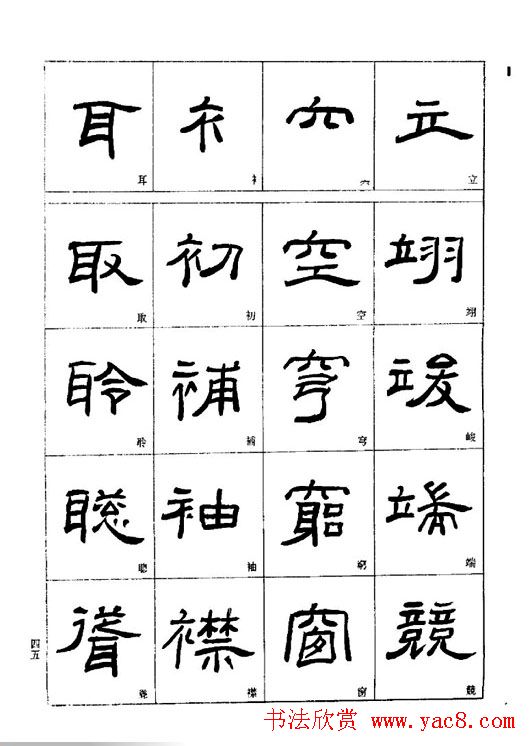 立 立
翊 翊
竣 竣
端 端
競 競
穴 穴
空 空
穹 穹
窮 窮
窗 窗
衤 衤
初 初
補 補
袖 袖
襟 襟
耳 耳
取 取
聆 聆
聰 聰
聳 聳
四五
书法欣赏 www.yac8.com